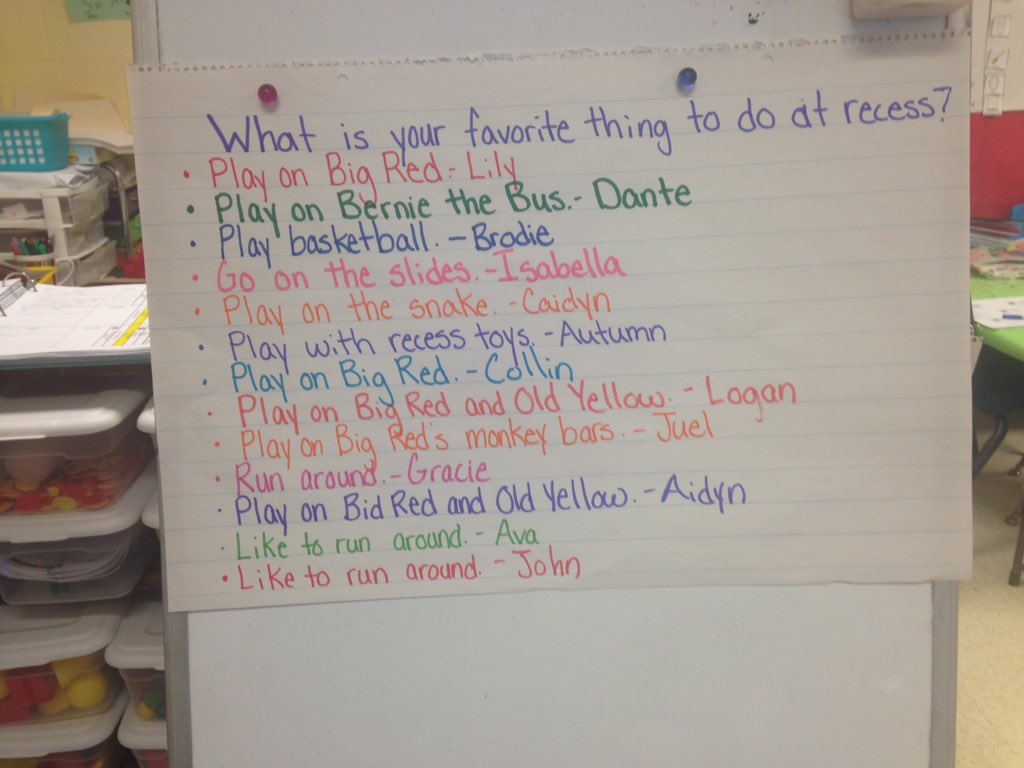 What is your favorite thing to do at recess?
• Play on Big Red.- Lily
• Play on Bernie the Bus.- Dante
• Play basketball. - Brodie
• Go on the slides.-Isabella
• Play on the snake. -Caidyn
• Play with recess toys. -Autumn
• Play on Big Red. - Collin
• Play on Big Red and Old Yellow. - Logan
• Play on Big Red's monkey bars. - Juel
• Run around.-Gracie
• Play on Bid Red and Old Yellow. -Aidyn
• Like to run around. - Ava
• Like to run around. - John